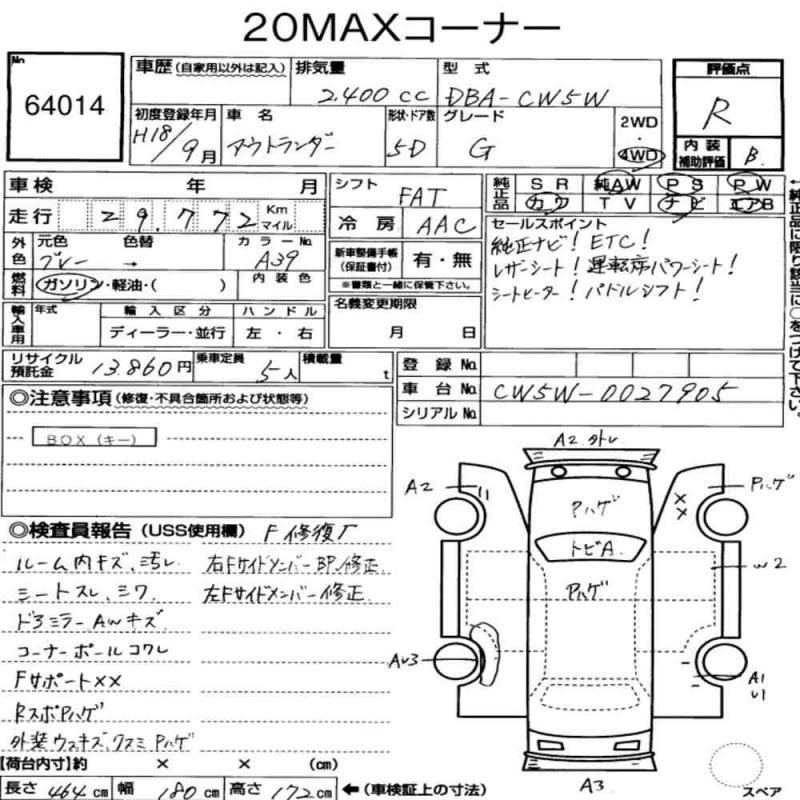 20MAXコーナー
No 64014
車歴 (自家用以外は記入) 排気量 2.400 cc 型式 DBA-CW5W
評価点 R
初度登録年月 H18/9月 車名 アウトランダー 形状・ドア数 5D グレード G 2WD・4WD
内装補助評価 B
車検 年 月
シフト FAT
純正品 SR 純AW PS PW
カワ TV ナビ エアB
走行 29.772 Km マイル
冷房 AAC
セールスポイント
純正ナビ! ETC!
レザーシート! 運転席パワーシート!
シートヒーター! パドルシフト!
外色 元色 グレー 色替 → カラーNo. A39
新車整備手帳 (保証書付) 有・無
※書類と一緒に保管下さい。
燃料 ガソリン・軽油・( ) 内装色
名義変更期限
月 日
輸入車用 年式 輸入区分 ハンドル
ディーラー・並行 左・右
リサイクル預託金 13.860円 乗車定員 5人 積載量 t
登録No.
車台No. CW5W-0027905
シリアルNo.
←純正品に限り該当に○をつけて下さい。
◎注意事項 (修復・不具合箇所および状態等)
BOX(キー)
◎検査員報告 (USS使用欄) F修復歴
ルーム内キズ、汚レ 右Fサイドメンバー BP/修正
シートスレ、シワ 左Fサイドメンバー 修正
ドアミラーAwキズ
コーナーポールコワレ
FサポートXX
RスポPハゲ
外装ウスキズ、クスミ Pハゲ
A2 外レ
A2
Pハゲ
Pハゲ
XX
トビA
Pハゲ
W2
AU3
A1
U1
A3
スペア
【荷台内寸】約 × × (cm)
長さ 464 cm 幅 180 cm 高さ 172 cm ←(車検証上の寸法)